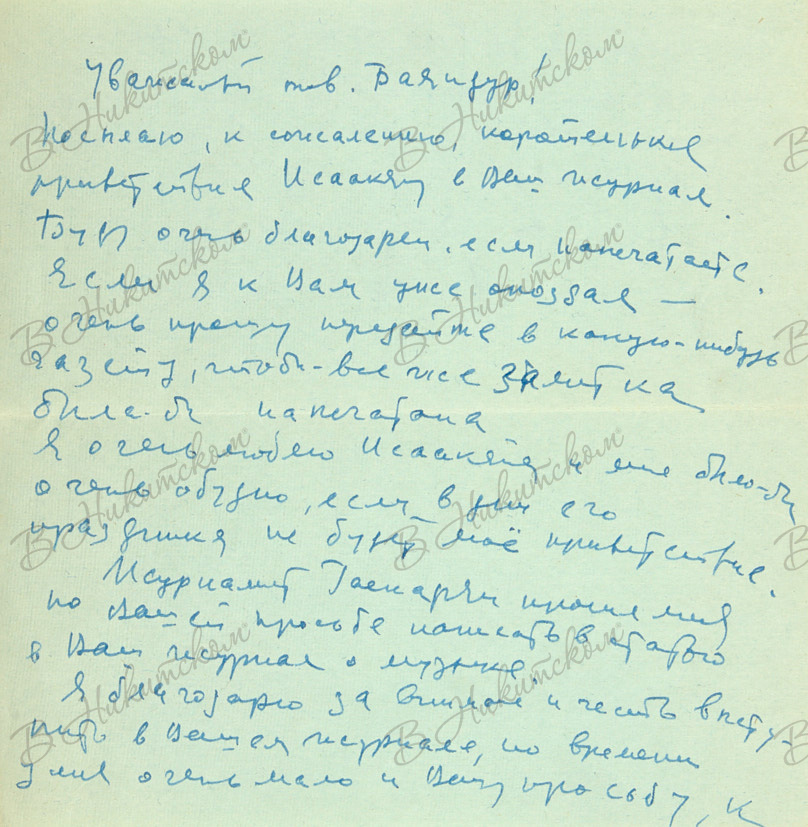 Уважаемый тов. Баяндур!
Посылаю, к сожалению, коротенькое
приветствие Исаакяну в Ваш журнал.
Буду очень благодарен, если напечатаете.
Если я к Вам уже опоздал —
очень прошу передайте в какую-нибудь
газету, чтобы все же заметка
была-бы напечатана
Я очень люблю Исаакяна и мне было-бы
очень обидно, если в дни его
праздника не будет моё приветствие.
Журналист Гаспарян просил меня
по Вашей просьбе написать статью
в Ваш журнал о музыке.
Я благодарю за внимание и честь высту-
пить в Вашем журнале, но времени
у меня очень мало и Вашу просьбу, к
В Никитском®